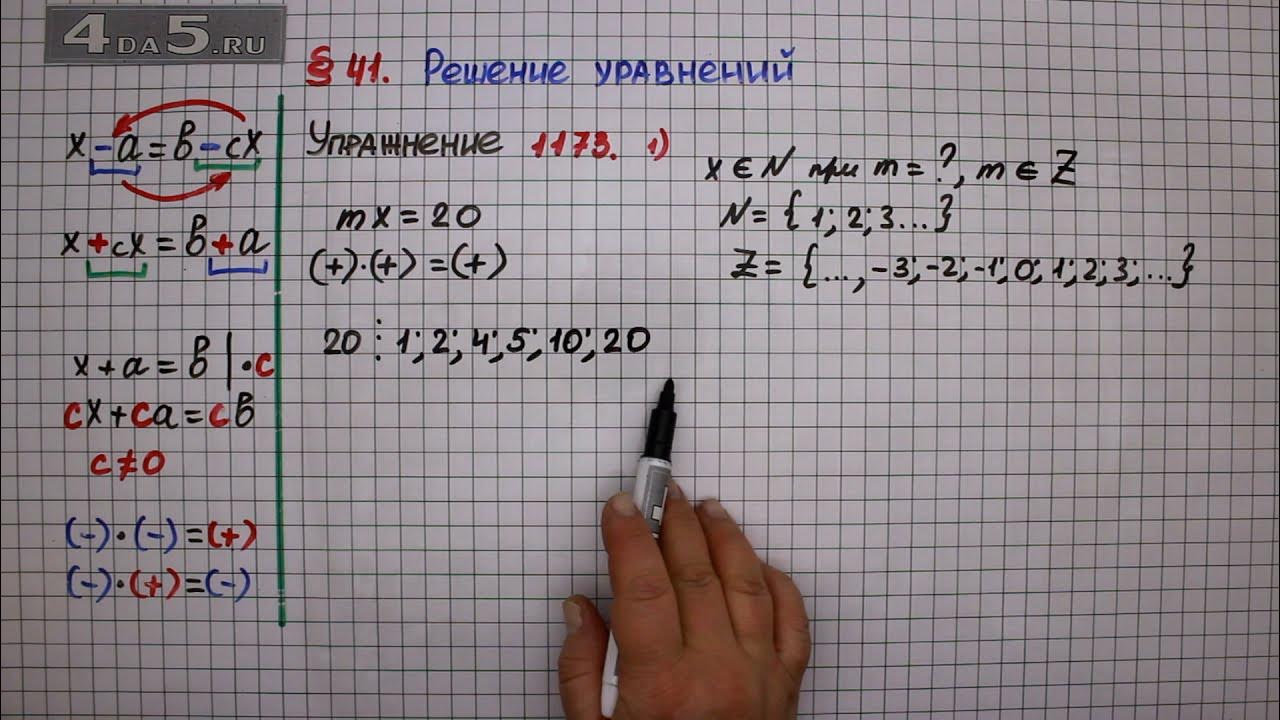 4DA5.RU
§ 41. Решение уравнений
x - a = b - cx
x + cx = b + a
x + a = b | · c
cx + ca = cb
c ≠ 0
(-) · (-) = (+)
(-) · (+) = (-)
Упражнение 1173. 1)
mx = 20
(+) · (+) = (+)
20 ⋮ 1; 2; 4; 5; 10; 20
x ∈ N при m = ?, m ∈ Z
N = { 1; 2; 3... }
Z = { ..., -3; -2; -1; 0; 1; 2; 3; ... }